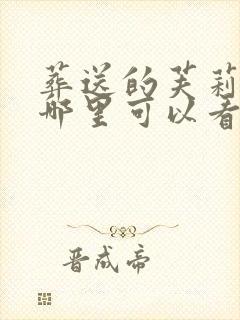 葬送的芙莉
哪里可以看
晋成帝